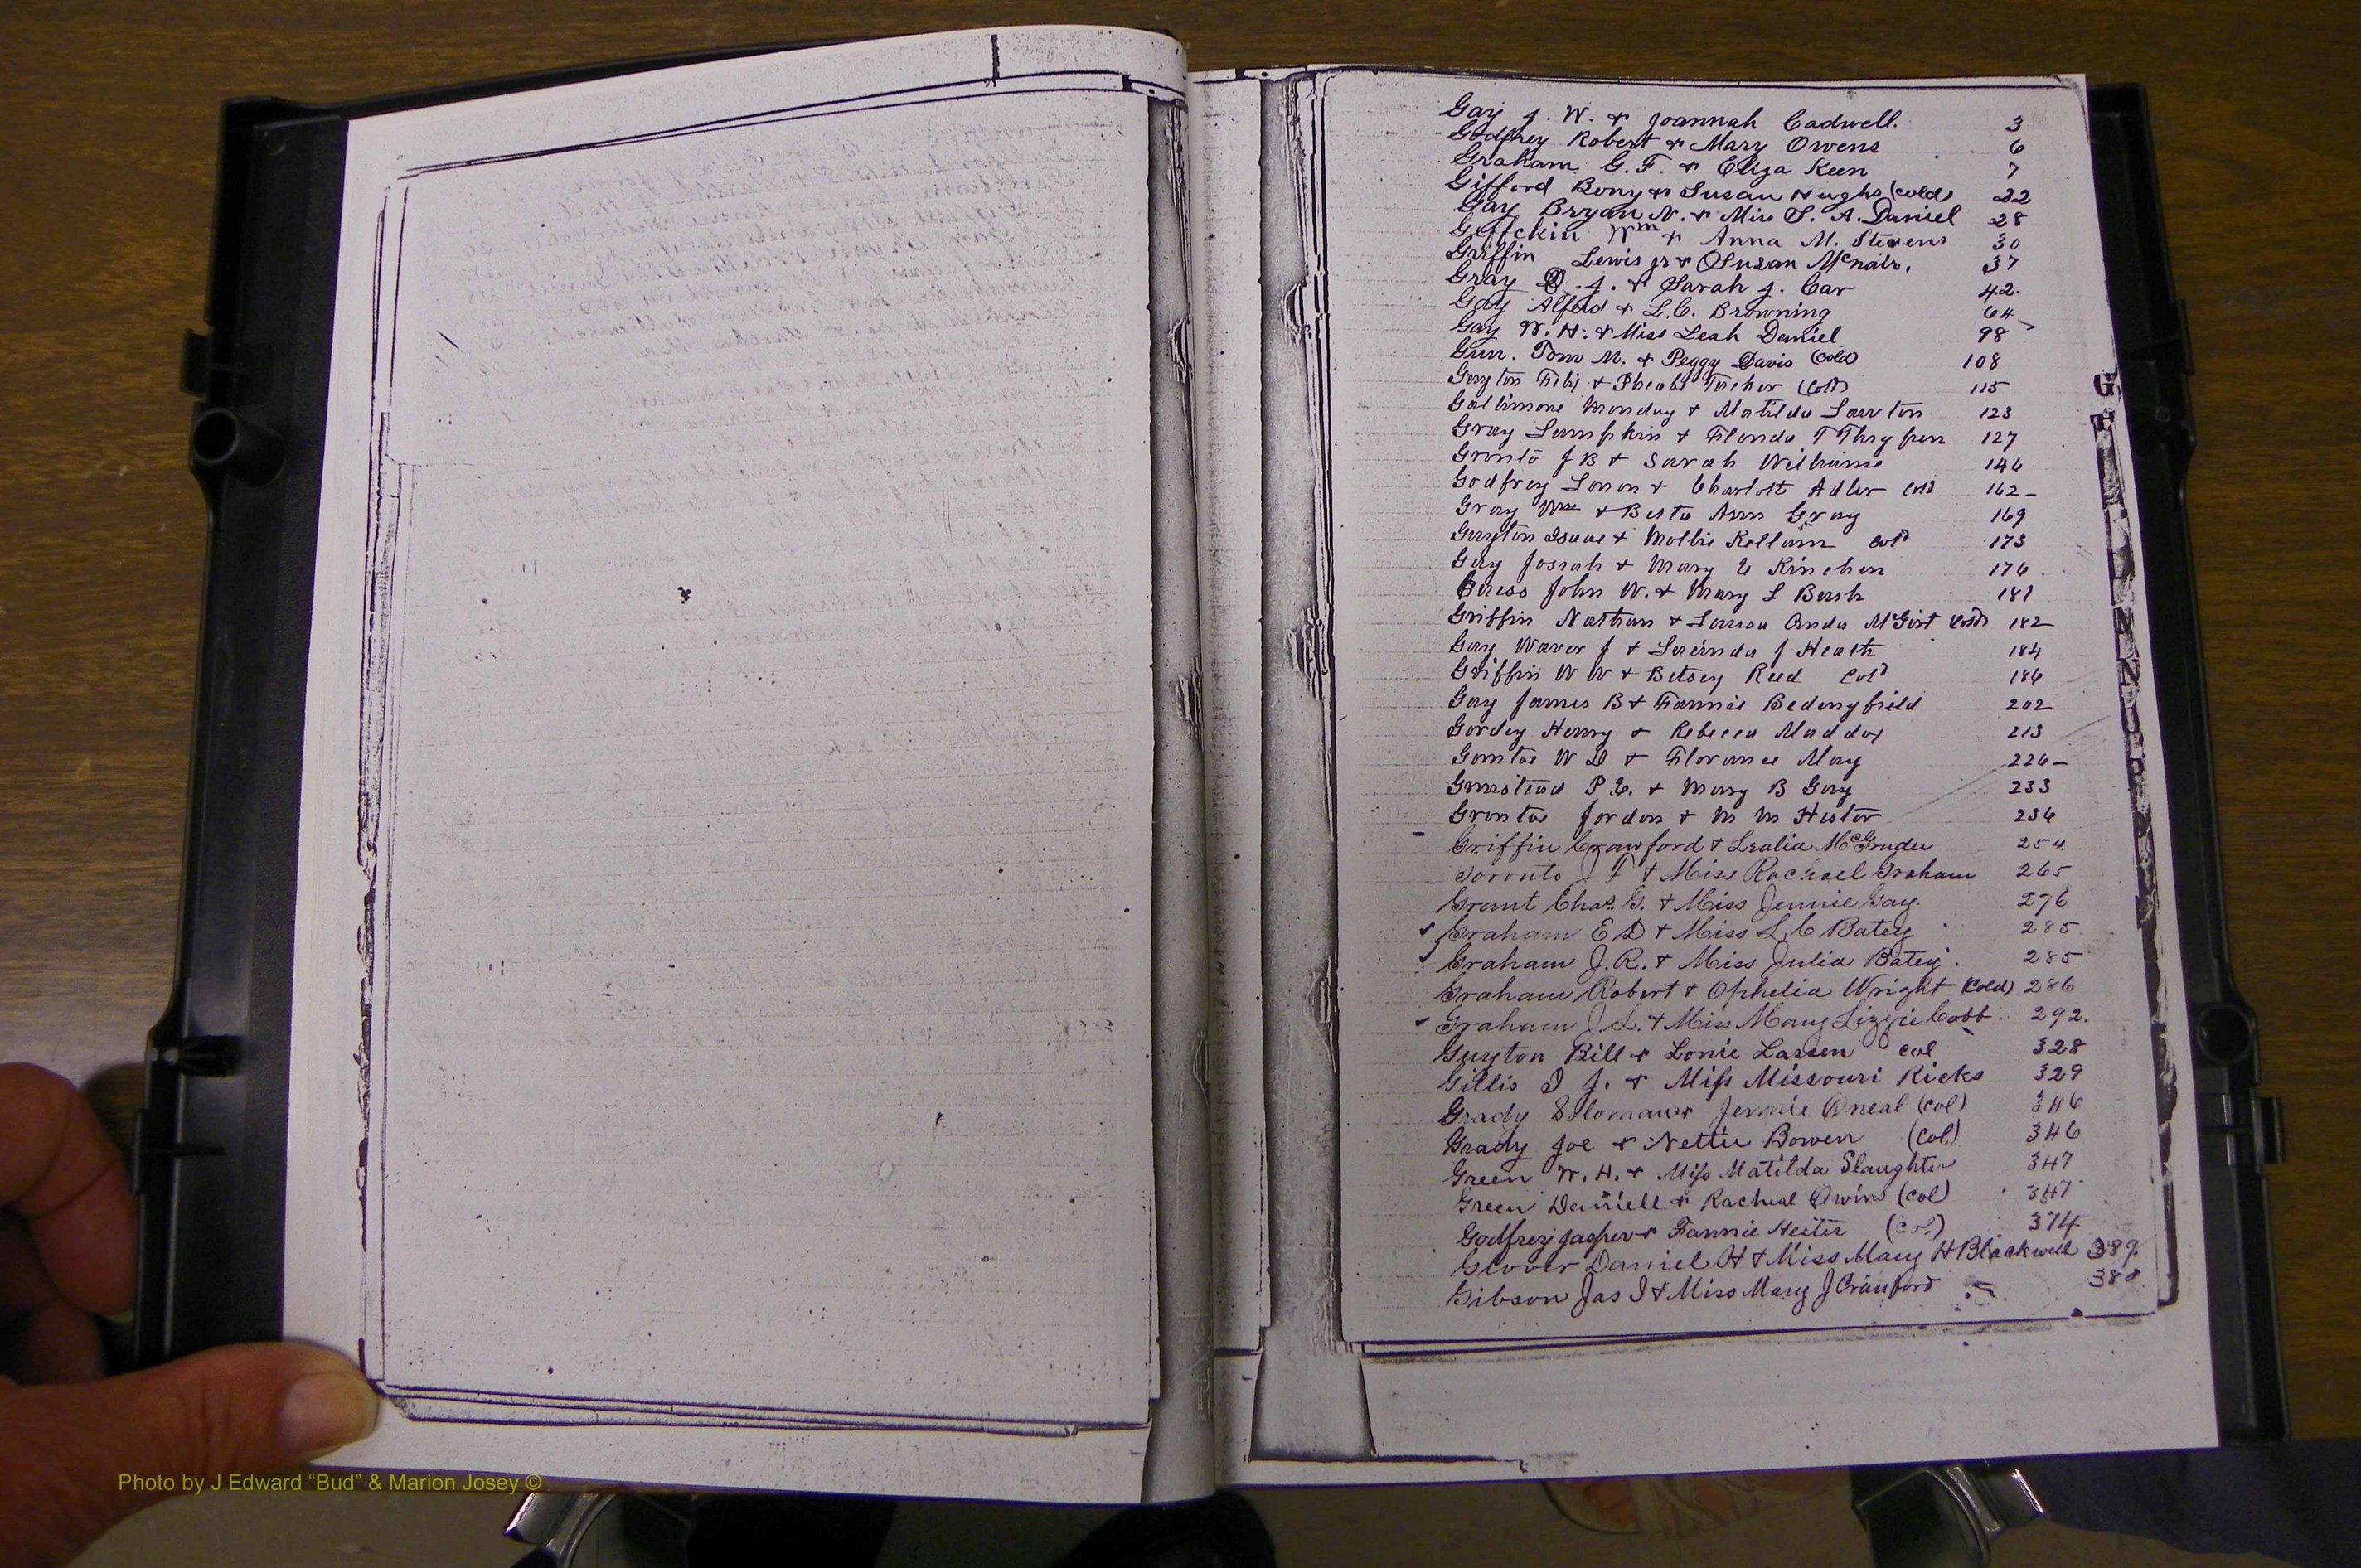 Gay J. W. & Joannah Cadwell. 3
Godfrey Robert & Mary Owens 6
Graham G. F. & Eliza Keen 7
Gifford Bony & Susan Hughs (cold) 22
Gay Bryan N. & Miss S. A. Daniel 28
Wm & Anna M. Stevens 30
Griffin Lewis jr & Susan McNair. 37
Gray J. & Sarah J. Car 42.
Gay Alfred & L.C. Browning 64
Gay W. H. & Miss Leah Daniel 98
Gun. Tom M. & Peggy Davis (cold) 108
Guyton & Tucker (Cold) 115
Gallimore Monday & Matilda 123
Gray Lumpkin & 127
J B & Sarah Williams 146
Godfrey & Charlott Adler Cold 162
Gray Wm & Ann Gray 169
Guyton Isaac & Mollie Kellam Cold 173
Gay Josiah & Mary E Kinchen 176
John W. & Mary L Bush 181
Griffin Nathan & McGirt Cold 182
Gay J & Lucinda J Heath 184
Griffin W W & Betsey Reed Cold 186
Gay James B & Fannie Bedingfield 202
Gordey Henry & Rebecca Maddox 213
W D & Florance May 226
P. E. & Mary B Gay 233
Jordon & M M Hester 236
Griffin Crawford & McGruder 254
J F & Miss Rachael Graham 265
Grant Chas. G. & Miss Jennie Gay. 276
Graham E D & Miss L C Batey 285
Graham J. R. & Miss Julia Batey. 285
Graham Robert & Ophelia Wright (Cold) 286
Graham J. L. & Miss Mary Lizzie Cobb 292.
Guyton Bill & Lonie Lassen Col 328
Gillis J. & Miss Missouri Ricks 329
Grady Soloman & Jennie Oneal (Col) 346
Grady Joe & Nettie Bowen (Col) 346
Green W. H. & Miss Matilda Slaughter 347
Green Daniell & Racheal Owins (Col) 347
Godfrey Jasper & Fannie Hester (Col) 374
Glover Daniel H & Miss Mary H Blackwell 389.
Gibson Jas I & Miss Mary J Cranford 380
G
Photo by J Edward “Bud” & Marion Josey ©